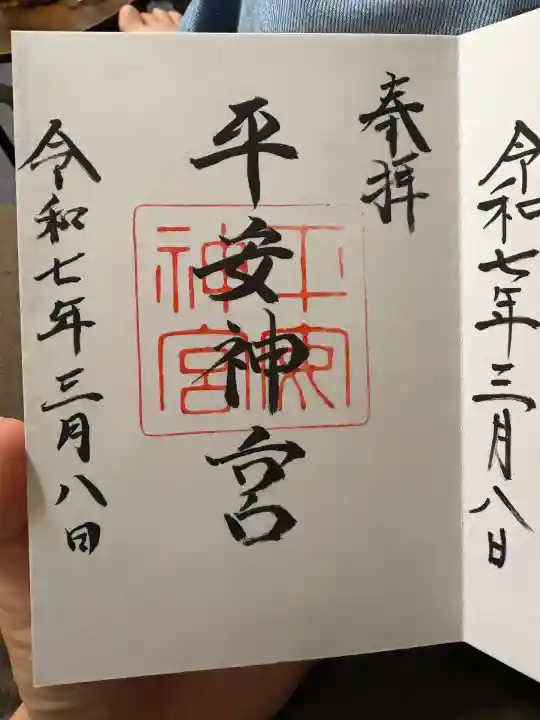 令和七年三月八日
奉拝
平安神宮
平安神宮
令和七年三月八日